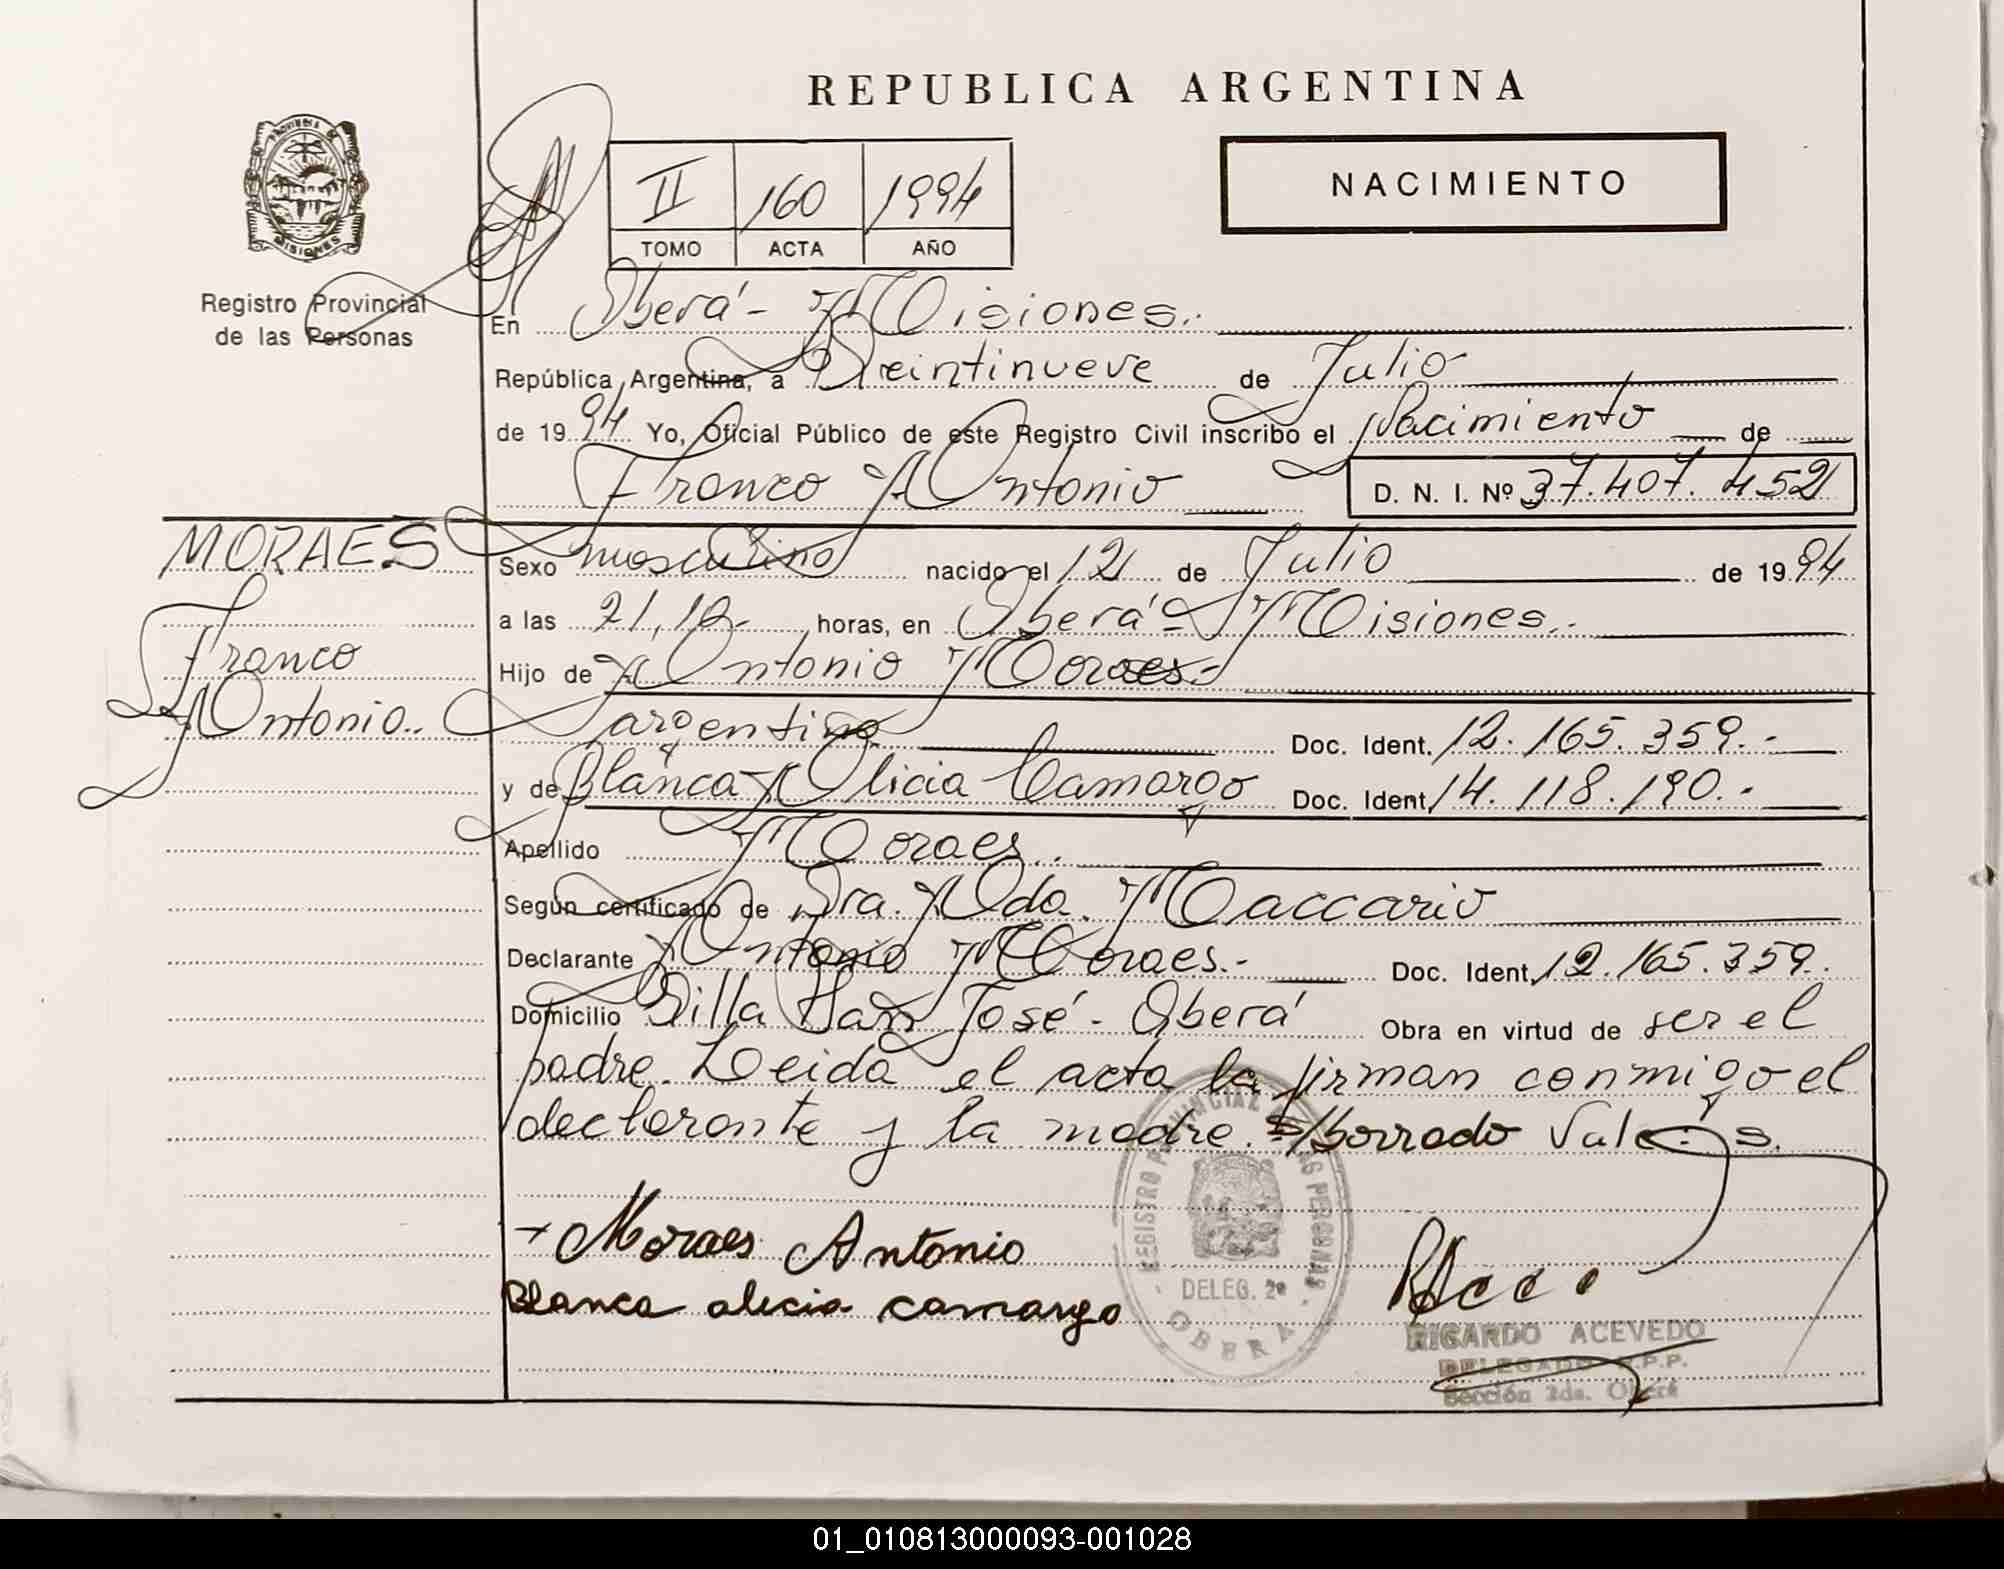 REPUBLICA ARGENTINA
PROVINCIA DE
MISIONES
Registro Provincial
de las Personas
II 160 1994
TOMO ACTA AÑO
NACIMIENTO
En Oberá - Misiones.
República Argentina, a Veintinueve de Julio
de 1994 Yo, Oficial Público de este Registro Civil inscribo el Nacimiento de
Franco Antonio D. N. I. Nº 37.407.452
MORAES
Franco
Antonio..
Sexo masculino nacido el 12 de Julio de 1994
a las 21,10- horas, en Oberá - Misiones..
Hijo de Antonio Moraes.-
argentino Doc. Ident. 12.165.359.-
y de Blanca Alicia Camargo Doc. Ident. 14.118.190.-
Apellido Moraes..
Según certificado de Dra. Ada. Maccario
Declarante Antonio Moraes.- Doc. Ident. 12.165.359.
Domicilio Villa San José - Oberá Obra en virtud de ser el
padre. Leida el acta la firman conmigo el
declarante y la madre. S/borrado Vale:
Moraes Antonio
Blanca alicia camargo
REGISTRO PROVINCIAL DE LAS PERSONAS
DELEG. 2ª
OBERA
RICARDO ACEVEDO
DELEGADO R.P.P.
Sección 2da. Oberá
01_010813000093-001028